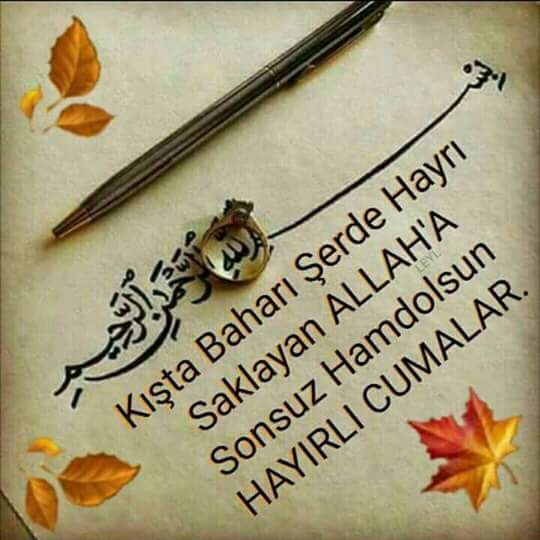 بسم الله الرحمن الرحيم
Kışta Baharı Şerde Hayrı
Saklayan ALLAH'A
Sonsuz Hamdolsun
HAYIRLI CUMALAR.
LEYL